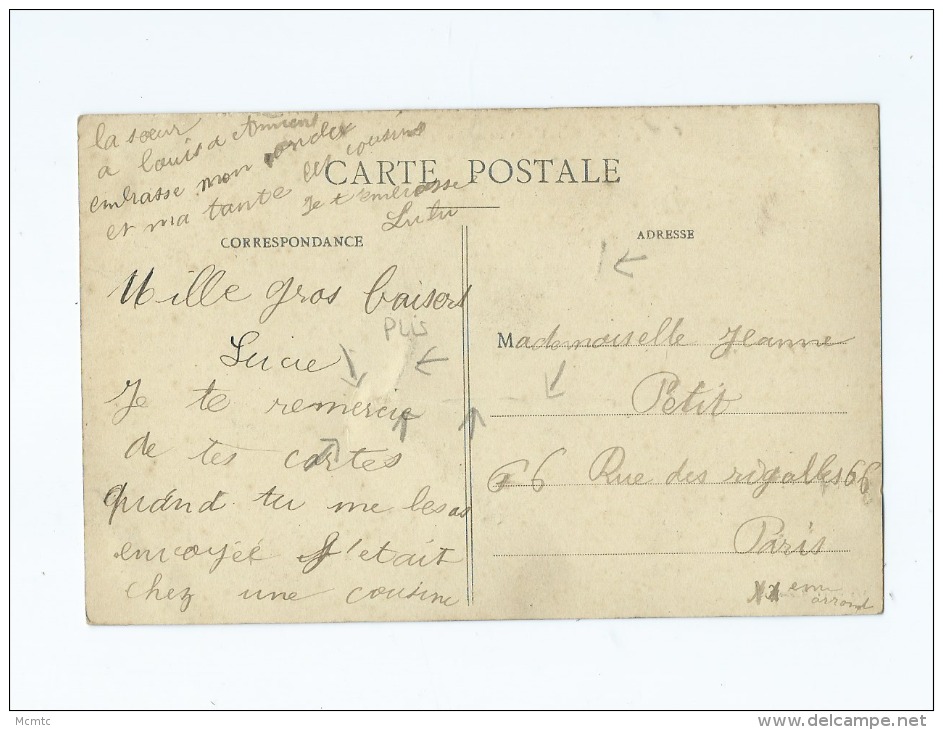 la sœur
a louis d Amiens
embrasse mon oncle
et ma tante et cousins
Je t'embrasse
Lulu
CARTE POSTALE
CORRESPONDANCE
ADRESSE
Mille gros baisers
PLIS
Lucie
Je te remercie
de tes cartes
quand tu me les as
envoyée j'etait
chez une cousine
Mademoiselle Jeanne
Petit
66 Rue des rigolles 66
Paris
XX eme
arrond
Mcmtc
delcampe.net